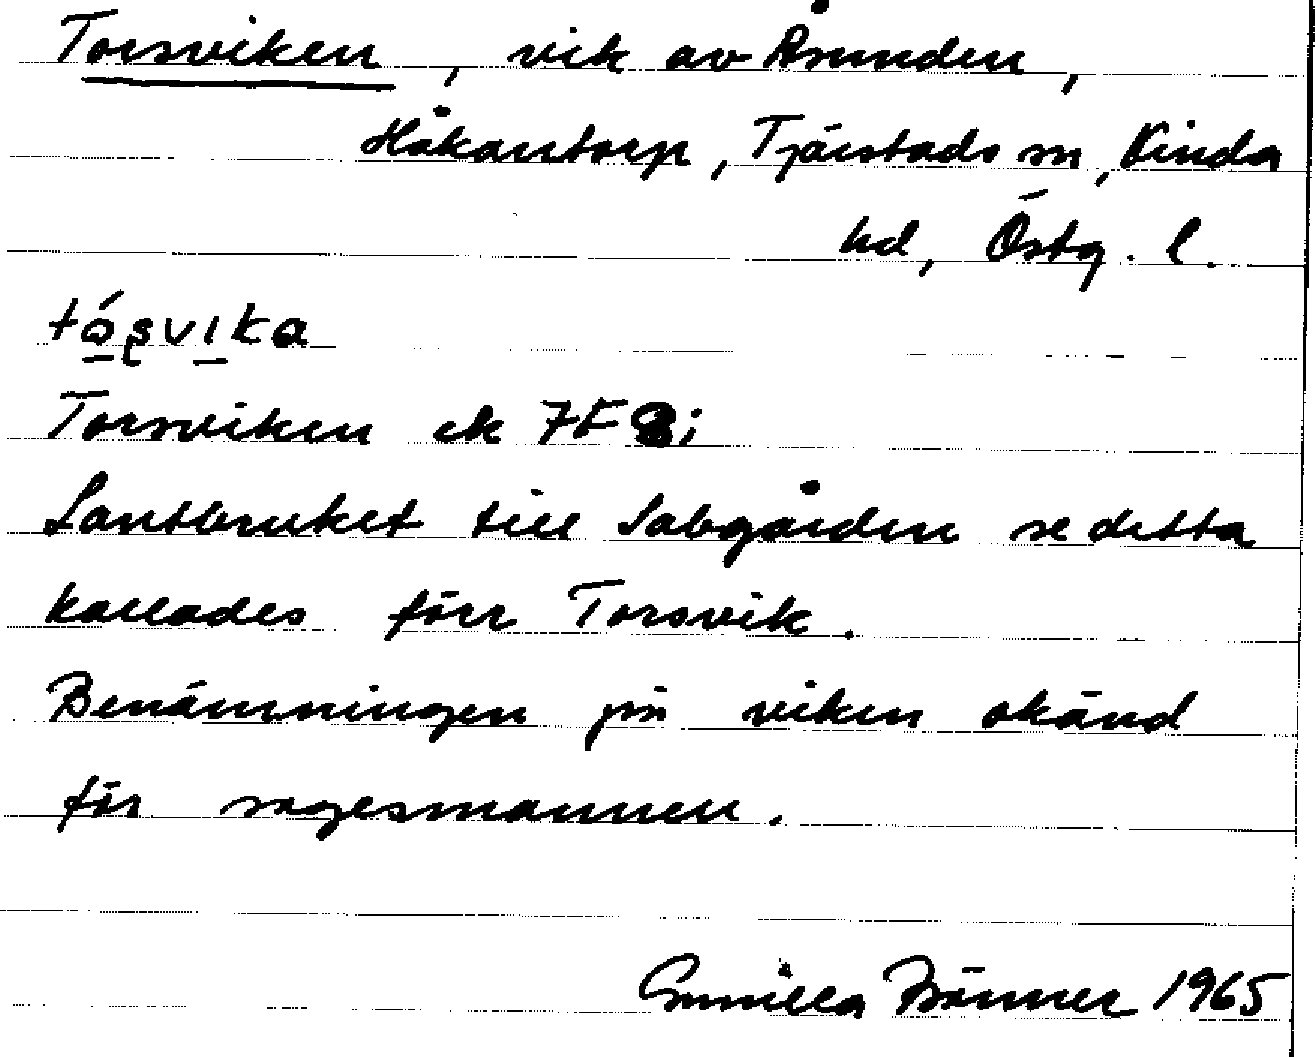 Torsviken, vik av Åsunden,
Håkantorp, Tjärstads sn, Kinda
hd, Östg. l.
tó̱ʂvi̱ka
Torsviken ek 7F 8i
Lantbruket till Sabgården se detta
kallades förr Torsvik.
Benämningen på viken okänd
för sagesmannen.
Gunilla 1965